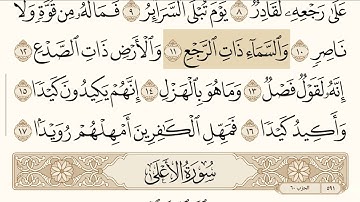 عَلَىٰ رَجْعِهِۦ لَقَادِرٌ ٨ يَوْمَ تُبْلَى ٱلسَّرَآئِرُ ٩ فَمَا لَهُۥ مِن قُوَّةٍ وَلَا
نَاصِرٍ ١٠ وَٱلسَّمَآءِ ذَاتِ ٱلرَّجْعِ ١١ وَٱلْأَرْضِ ذَاتِ ٱلصَّدْعِ ١٢
إِنَّهُۥ لَقَوْلٌ فَصْلٌ ١٣ وَمَا هُوَ بِٱلْهَزْلِ ١٤ إِنَّهُمْ يَكِيدُونَ كَيْدًا ١٥
وَأَكِيدُ كَيْدًا ١٦ فَمَهِّلِ ٱلْكَٰفِرِينَ أَمْهِلْهُمْ رُوَيْدًۢا ١٧
سُورَةُ الأَعْلَىٰ
٥٩١ الحزب ٦٠